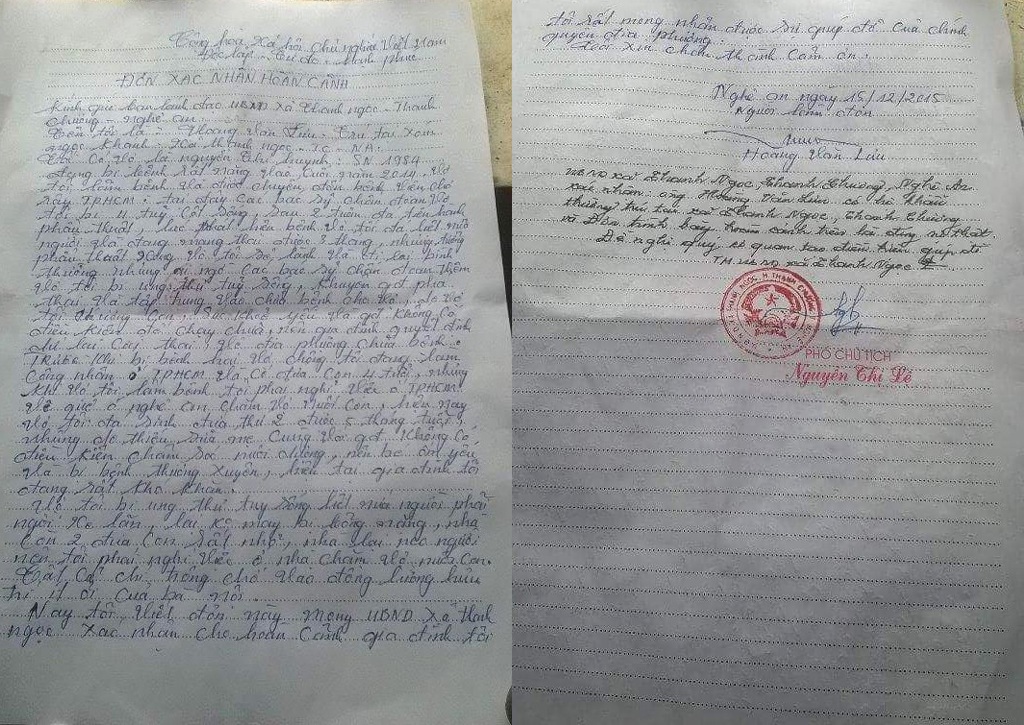 Cộng hòa Xã hội Chủ nghĩa Việt Nam
Độc lập - Tự do - Hạnh phúc
ĐƠN XÁC NHẬN HOÀN CẢNH
Kính gửi ban lãnh đạo UBND Xã Thanh ngọc - Thanh
chương - nghệ an
Tên tôi là : Hoàng Văn Lưu : Trú tại xóm
ngọc khánh - Xã thanh ngọc - TC - NA.
Tôi có vợ là nguyễn thị huỳnh : SN 1984
đang bị bệnh rất nặng vào cuối năm 2014 vợ
tôi lâm bệnh và được chuyển đến bệnh viện chợ
rẫy TPHCM : tại đây các bác sỹ chẩn đoán vợ
tôi bị u tuỷ cột sống, sau 2 tuần đã tiến hành
phẫu thuật, lúc phát hiện bệnh vợ tôi đã liệt nửa
người và đang mang thai được 3 tháng, những tưởng
phẫu thuật xong vợ tôi sẽ lành và đi lại bình
thường nhưng ai ngờ các bác sỹ chẩn đoán thêm
vợ tôi bị ung thư tuỷ sống, khuyên gđ phá
thai và tập trung vào chữa bệnh cho vợ, do vợ
tôi sức khoẻ yếu và gđ không có
điều kiện để chạy chữa, nên gia đình quyết định
để lại cái thai, về địa phương chữa bệnh
Trước khi bị bệnh hai vợ chồng tôi đang làm
công nhân ở TPHCM và có đứa con 4 tuổi, nhưng
khi vợ tôi lâm bệnh tôi phải nghỉ việc ở TPHCM
về quê ở nghệ an chăm vợ nuôi con, hiện nay
vợ tôi đã sinh đứa thứ 2 được 5 tháng tuổi,
nhưng do thiếu sữa mẹ cùng với gđ không có
điều kiện chăm sóc nuôi dưỡng, nên bé ốm yếu
và bị bệnh thường xuyên, hiện tại gia đình tôi
đang rất khó khăn.
Vợ tôi bị ung thư tuỷ sống liệt nửa người phải
ngồi xe lăn, lại ko may bị bỏng nặng, nhà
còn 2 đứa con rất nhỏ, nhà lại neo người
nên tôi phải nghỉ việc ở nhà chăm vợ nuôi con.
Tất cả chỉ trông chờ vào đồng lương hưu
trí ít ỏi của bà nội.
Nay tôi viết đơn này mong UBND Xã thanh
ngọc xác nhận cho hoàn cảnh gia đình tôi
tôi rất mong nhận được sự giúp đỡ của chính
quyền địa phương.
Tôi xin chân thành cảm ơn.
Nghệ an ngày 15/12/2015
Người làm đơn
Hoàng Văn Lưu
UBND xã Thanh Ngọc, Thanh Chương, Nghệ An
xác nhận: ông Hoàng Văn Lưu có hộ khẩu
thường trú tại xã Thanh Ngọc, Thanh Chương
và Đơn trình bày hoàn cảnh trên là đúng sự thật.
Đề nghị quý cơ quan tạo điều kiện giúp đỡ
TM. UBND xã Thanh Ngọc
PHÓ CHỦ TỊCH
Nguyễn Thị Lê